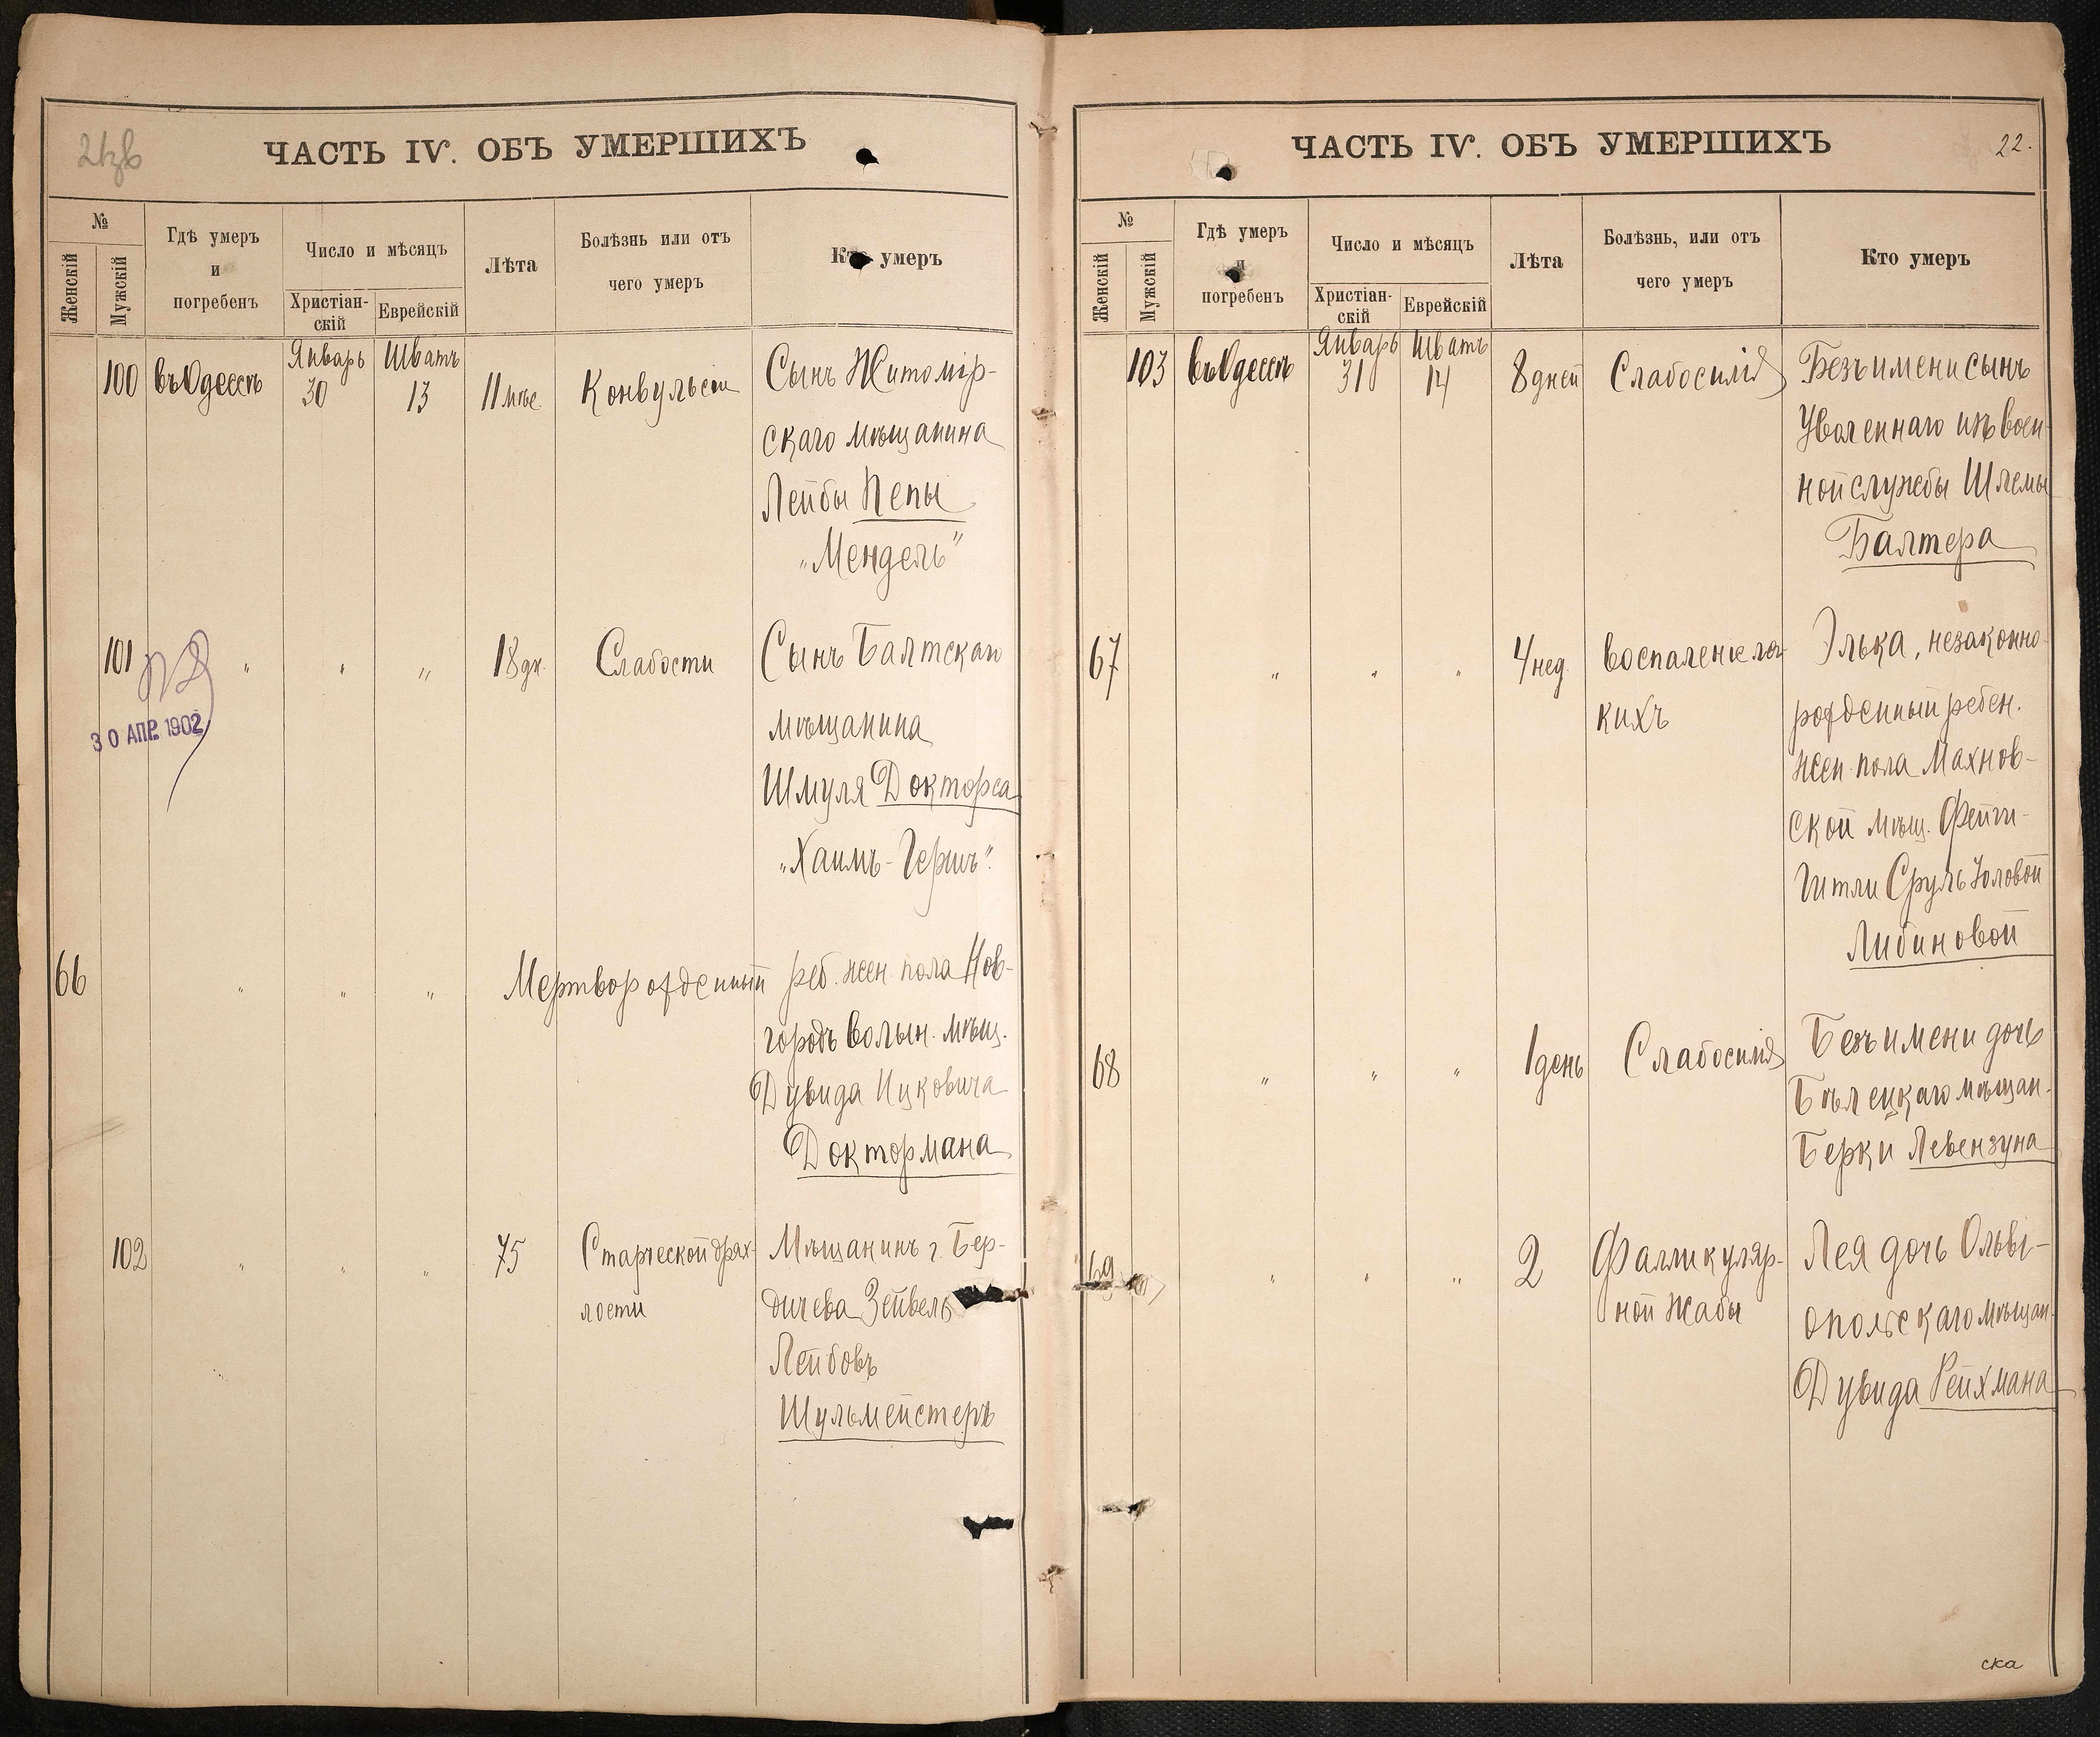 ЧАСТЬ IV. ОБЪ УМЕРШИХЪ
№
Женскій
Мужскій
Гдѣ умеръ
и
погребенъ
Число и мѣсяцъ
Христіан-
скій
Еврейскій
Лѣта
Болѣзнь или отъ
чего умеръ
Кто умеръ
100 въ Одессѣ Январь 30 Шватъ 13 11 мѣс. Конвульсіи Сынъ Житомір-
скаго мѣщанина
Лейбы Пепы
„Мендель"
101 " " " 18 дн. Слабости Сынъ Балтскаго
мѣщанина
30 АПР. 1902
Шмуля Докторса
„Хаимъ-Гершъ".
66 " " " Мертворожденный реб. жен. пола Нов-
городъ Волын. мѣщ.
Дувида Ицковича
Доктормана
102 " " " 75 Старческой дрях- Мѣщанинъ г. Бер-
лости дичева Зейвель
Лейбовъ
Шульмейстеръ
ЧАСТЬ IV. ОБЪ УМЕРШИХЪ
22.
№
Женскій
Мужскій
Гдѣ умеръ
и
погребенъ
Число и мѣсяцъ
Христіан-
скій
Еврейскій
Лѣта
Болѣзнь, или отъ
чего умеръ
Кто умеръ
103 въ Одессѣ Январь 31 Шватъ 14 8 дней Слабосилія Безъ имени сынъ
Уволеннаго изъ воен-
ной службы Шлемы
Балтера
67 " " " 4 нед. Воспаленіе лег- Элька, незаконно-
кихъ рожденный ребен.
жен. пола Махнов-
ской мѣщ. Фейги-
Гитли Сруль Юловой
Либиновой
68 " " " 1 день Слабосилія Безъ имени дочь
Бѣлецкаго мѣщан.
Берки Левензуна
69 " " " 2 Фалликуляр- Лея дочь Ольві-
ной Жабы опольскаго мѣщан.
Дувида Рейхмана
ска